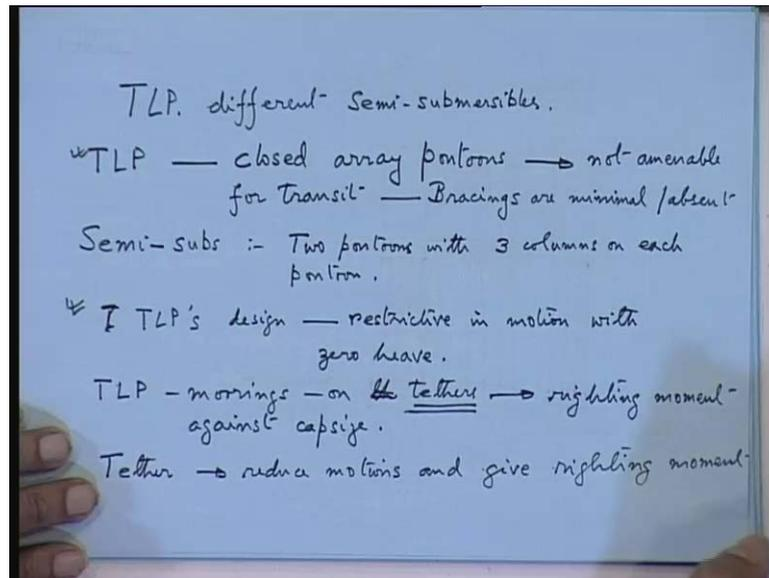 TLP. different Semi-submersibles.
TLP — closed array pontoons → not amenable
for transit — Bracings are minimal /absent
Semi-subs :- Two pontoons with 3 columns on each
pontoon.
I TLP's design — restrictive in motion with
zero heave.
TLP - moorings - on tethers → righting moment
against capsize.
Tether → reduce motions and give righting moment